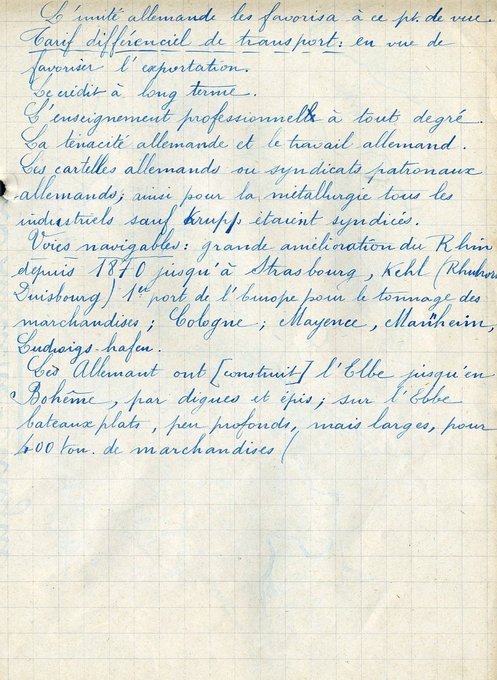 L'unité allemande les favorisa à ce pt. de vue.
Tarif différenciel de transport: en vue de
favoriser l'exportation.
Le crédit à long terme.
L'enseignement professionnel à tout degré.
La ténacité allemande et le travail allemand.
Les cartelles allemands ou syndicats patronaux
allemands; ainsi pour la métallurgie tous les
industriels sauf Krupp étaient syndiqués.
Voies navigables: grande amélioration du Rhin
depuis 1870 jusqu'à Strasbourg, Kehl (Rhuhror
Duisbourg) 1er port de l'Europe pour le tonnage des
marchandises; Cologne; Mayence, Manheim,
Ludwigs-hafen.
Les Allemant ont [construit] l'Elbe jusqu'en
Bohême, par digues et épis; sur l'Elbe
bateaux plats, peu profonds, mais larges, pour
400 ton. de marchandises (